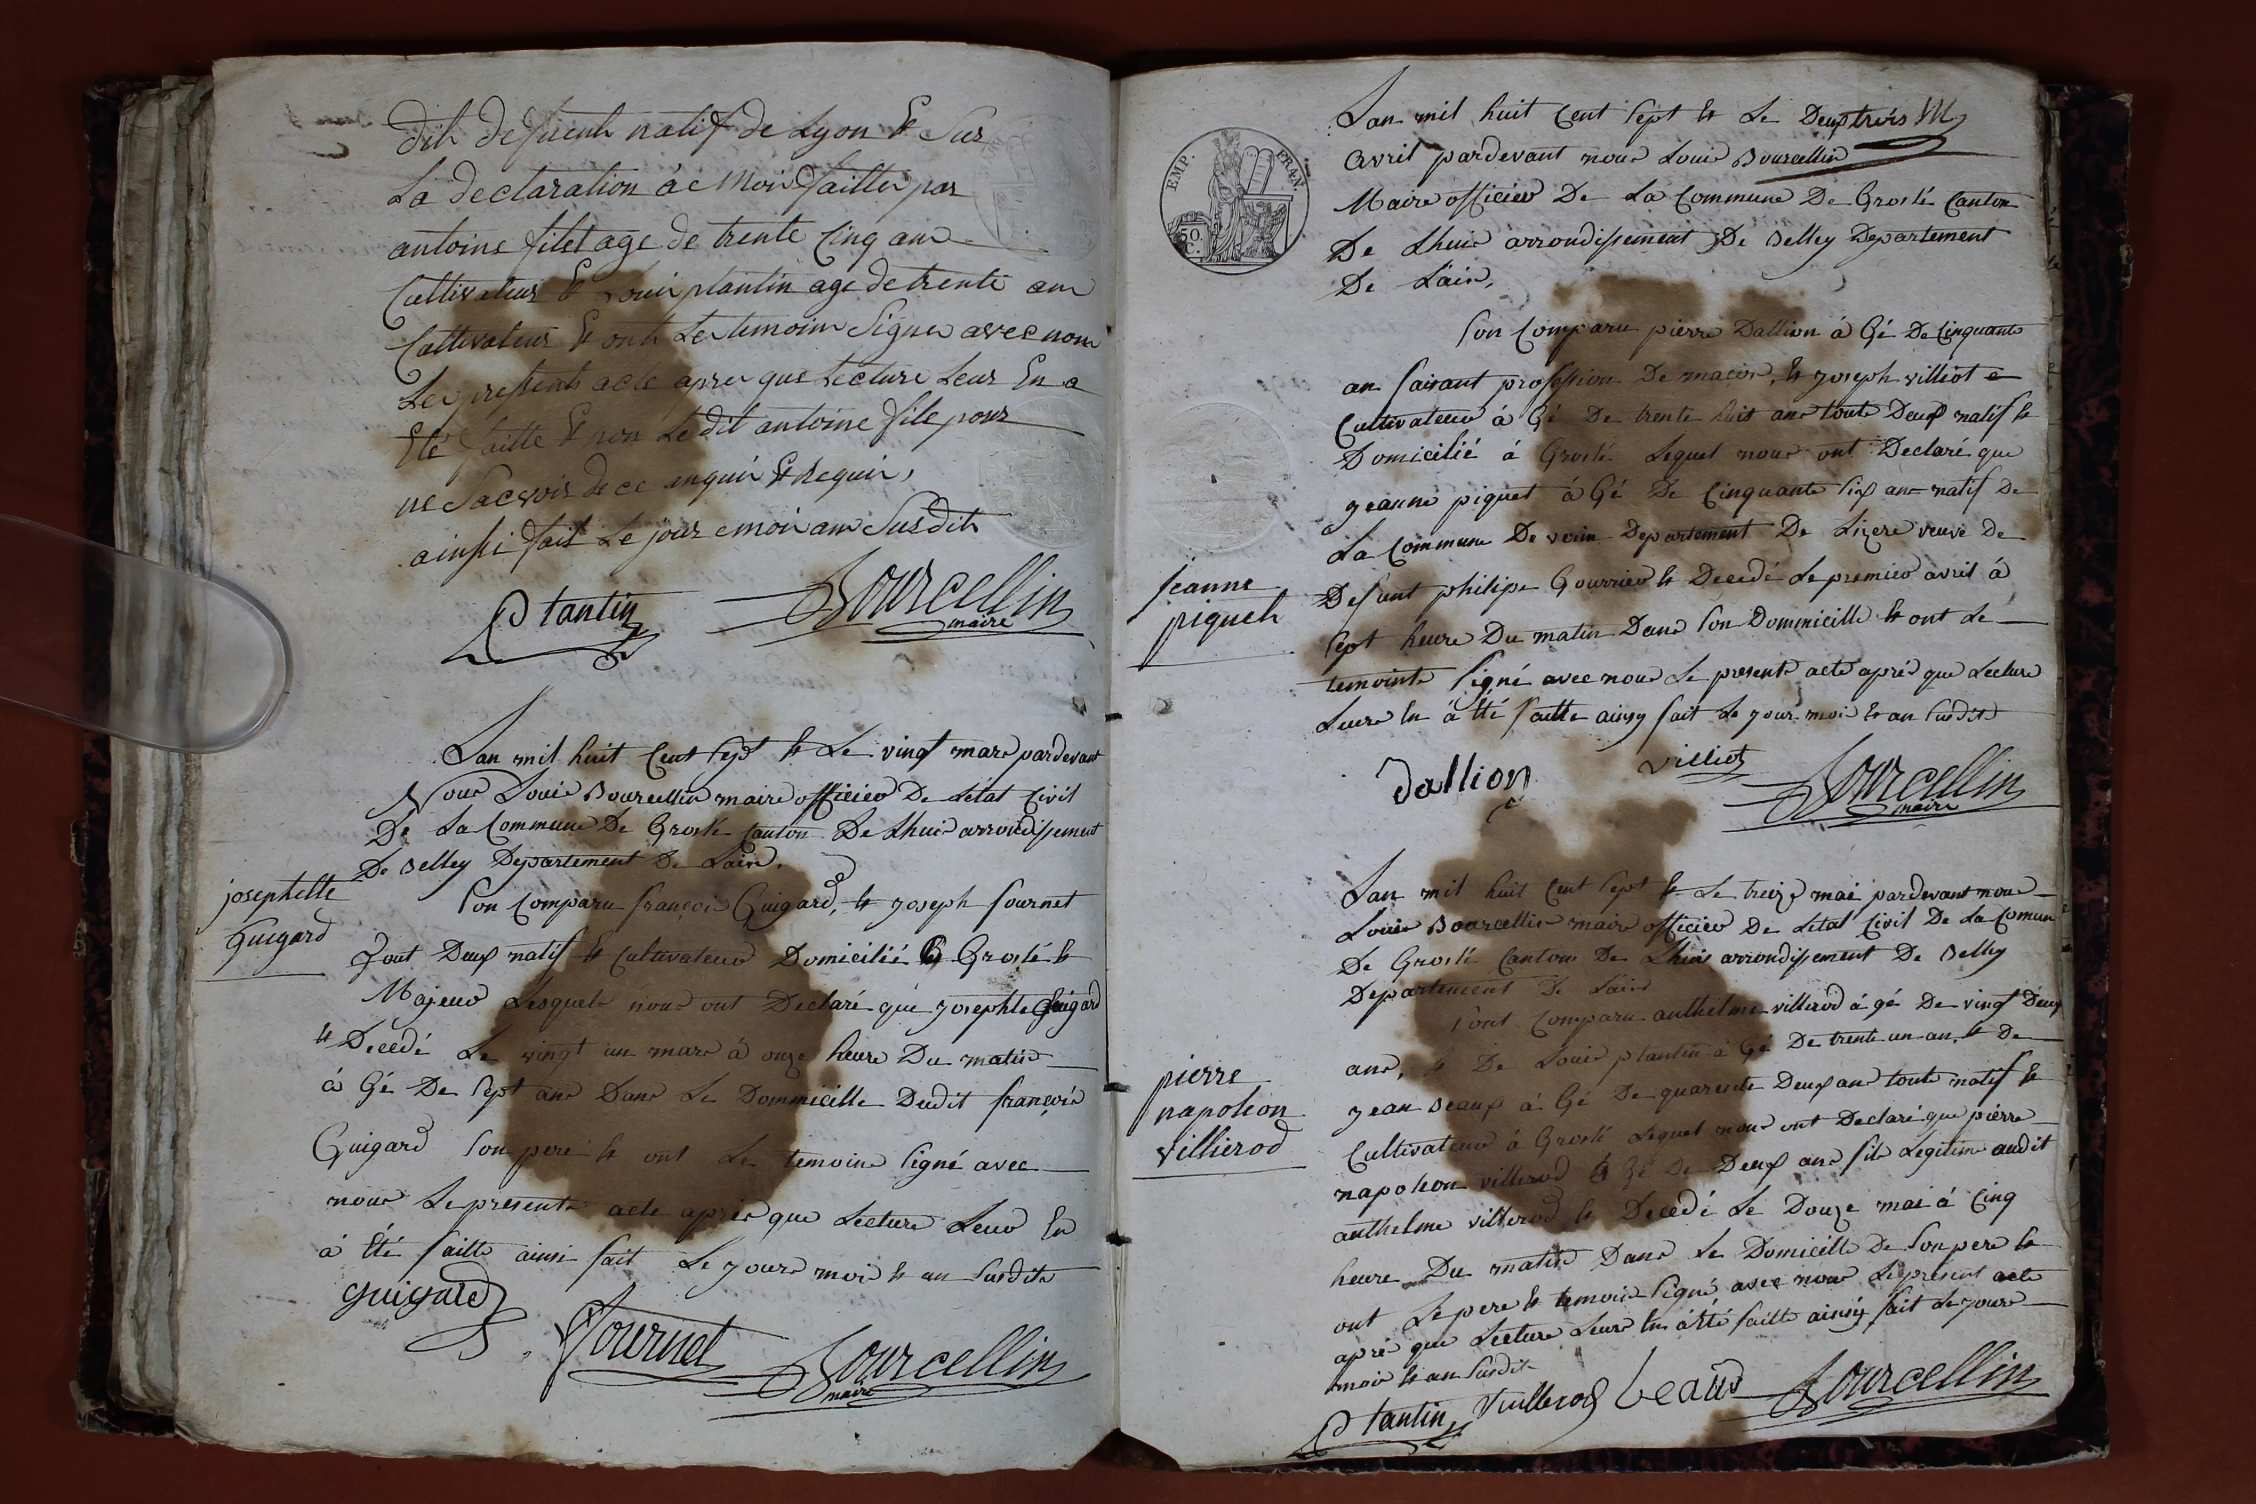 dih defuenh natif de Lyon & Sus
La declaration áe Moir faitter par
antoine filet age de trente Cinq anr
Cultivateur & Louir plantin age de trente anr
Cultivateur & onh Le temoinr Signer avec nour
Le pressents acte aprer que Lecture Leur En a
Eté faitte & non Le dit antoine file pour
ne Sacvoir de ce enquir & Requir,
ainssi fait Le jour e moir anr Susdith
Plantin
Bourcellin
maire
Lan mil huit Cent Sept & Le vingt mars pardevant
Nous Louis Bourcellin maire officier De Letat Civil
De La Commune De Groslé Canton De Lhuis arrondissement
De Belley Departement De Lain.
josephette
Guigard
Son Comparu françois Guigard, & Joseph fournet
Tout Deux natif & Cultivateur Domicilié à Groslé &
Majeur Lesquels nous ont Declaré que Josephte Guigard
& Decedé Le vingt un mars à onze heure Du matin
á Gé De Sept ans Dans Le Dommicille Dudit françois
Guigard Son pere & ont Le temoins Signé avec
nous Le presente acte aprés que Lecture Leur En
á Eté faitte ainsi fait Le Jours mois & an Susdits
guigard
fournet
Bourcellin
maire
EMP. FRAN.
50 C.
Lan mil huit Cent Sept & Le Deux trois M
Avril pardevant nous Louis Bourcellin
Maire officier De La Commune De Groslé Canton
De Lhuis arrondissement De Belley Departement
De Lain,
Son Comparu pierre Dallion á Gé De Cinquante
an faisant profession De macon, & Joseph villiot e
Cultivateur á Gé De trente huit ans toute Deux natif &
Domicilié á Groslé Lequel nous ont Declaré que
Jeanne piquet á Gé De Cinquante Six ans natif De
La Commune De voirin Departement De Lizere veuve De
Jeanne
piqueh
Defunt philipe Gourrier & Decedé Le premier avril á
Sept heure Du matin Dans Son Dommicille & ont Le
temointe Signé avec nous Le presente acte aprés que Lecture
Leure En á Eté faitte ainsy fait Le Jour mois & an Susdits
dallion
villiot
Bourcellin
maire
Lan mil huit Cent Sept & Le treize mai pardevant nous
Louis Bourcellin maire officier De Letat Civil De La Comune
De Groslé Canton De Lhuis arrondissement De Belley
Departement De Lain
Sont Comparu anthelme villerod á gé De vingt Deux
ans, & De Louis plantin á Gé De trente un an, & De
pierre
napoleon
villierod
Jean Beaux á Gé De quarente Deux ans toute natif &
Cultivateur á Groslé Lequel nous ont Declaré que pierre
napoleon villerod á Gé De Deux ans fils Legitime audit
anthelme villerod & Decedé Le Douze mai á Cinq
heure Du matin Dans Le Domicille De Son pere &
ont Le pere & temoins Signé avec nous Le present acte
aprés que Lecture Leure En á été faitte ainsy fait Le Jours
mois & an Susdit
Plantin Vuillerod beaux Bourcellin